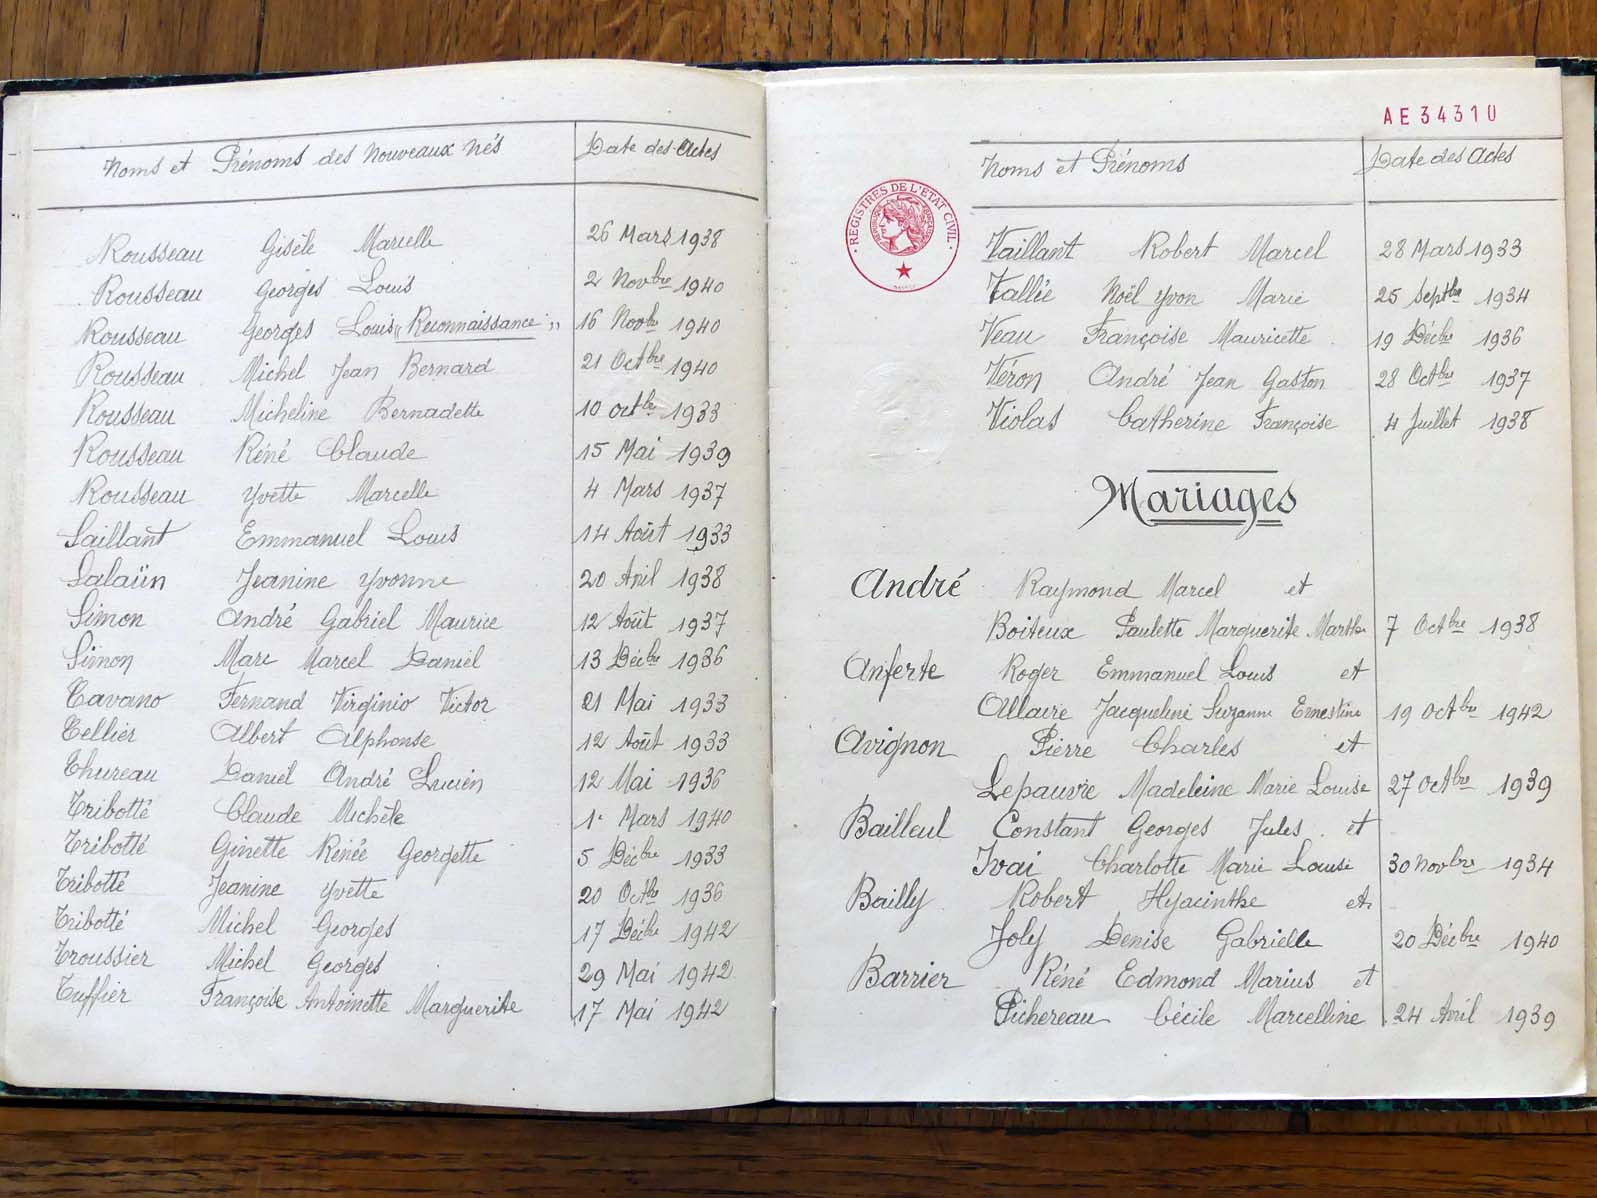 Noms et Prénoms des Nouveaux Nés Date des Actes
Rousseau Gisèle Marcelle 26 Mars 1938
Rousseau Georges Louis 2 Novbre 1940
Rousseau Georges Louis „Reconnaissance„ 16 Novbre 1940
Rousseau Michel Jean Bernard 21 Octbre 1940
Rousseau Micheline Bernadette 10 Octbre 1933
Rousseau Réné Claude 15 Mai 1939
Rousseau Yvette Marcelle 4 Mars 1937
Saillant Emmanuel Louis 14 Août 1933
Salaün Jeanine Yvonne 20 Avril 1938
Simon André Gabriel Maurice 12 Août 1937
Simon Marc Marcel Daniel 13 Décbre 1936
Tavano Fernand Virginio Victor 21 Mai 1933
Tellier Albert Alphonse 12 Août 1933
Thureau Daniel André Lucien 12 Mai 1936
Tribotté Claude Michèle 1er Mars 1940
Tribotté Ginette Renée Georgette 5 Décbre 1933
Tribotté Jeanine Yvette 20 Octbre 1936
Tribotté Michel Georges 17 Décbre 1942
Troussier Michel Georges 29 Mai 1942
Tuffier Françoise Antoinette Marguerite 17 Mai 1942
AE34310
Noms et Prénoms Date des Actes
REGISTRES DE L'ETAT CIVIL
Vaillant Robert Marcel 28 Mars 1933
Vallée Noël Yvon Marie 25 Septbre 1934
Veau Françoise Mauricette 19 Décbre 1936
Véron André Jean Gaston 28 Octbre 1937
Violas Catherine Françoise 4 Juillet 1938
Mariages
André Raymond Marcel et
Boiteux Paulette Marguerite Marthe 7 Octbre 1938
Anferte Roger Emmanuel Louis et
Allaire Jacqueline Suzanne Ernestine 19 Octbre 1942
Avignon Pierre Charles et
Lepauvre Madeleine Marie Louise 27 Octbre 1939
Bailleul Constant Georges Jules et
Ivai Charlotte Marie Louise 30 Novbre 1934
Bailly Robert Hyacinthe et
Joly Denise Gabrielle 20 Décbre 1940
Barrier Réné Edmond Marius et
Pichereau Cécile Marcelline 24 Avril 1939